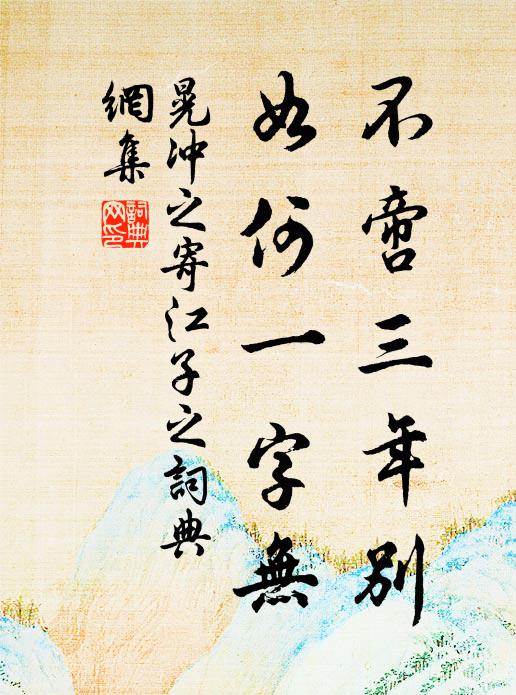 不啻三年別
如何一字無
晁沖之寄江子之詞典
網集
詞典
网印